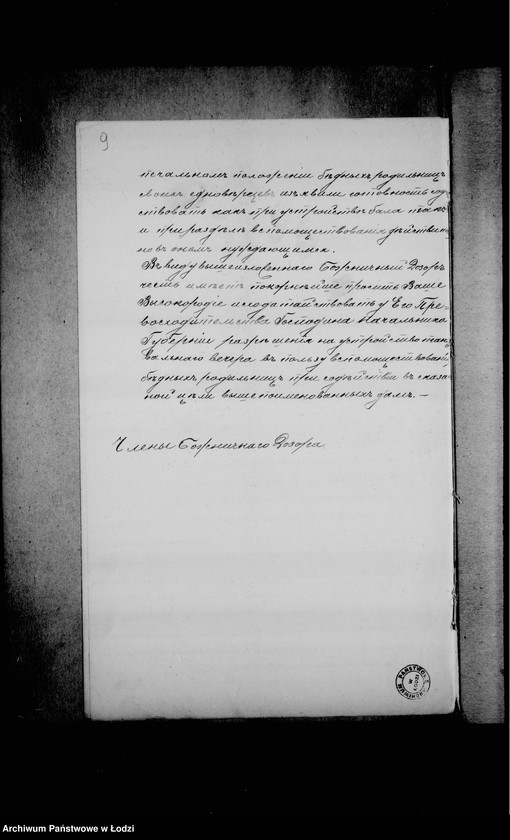 9
печальномъ положеніи бѣдныхъ родильницъ
своихъ единовѣрцевъ изъявили готовность содѣ-
ствовать какъ при устройствѣ бала такъ
и при раздачѣ вспомоществованія дѣйствите
но въ ономъ нуждающимся.
Въ виду вышеизложеннаго Божничный Дозоръ
честь имѣетъ покорнѣйше просить Ваше
Высокородіе исходатайствовать у Его Пре-
восходительства Господина Начальника
Губерніи разрѣшенія на устройство тан
вальнаго вечера въ пользу вспомоществованія
бѣдныхъ родильницъ при содѣйствіи въ сказа
ной цѣли вышепоименованныхъ дамъ. —
Члены Божничнаго Дозора
Archiwum Państwowe w Łodzi